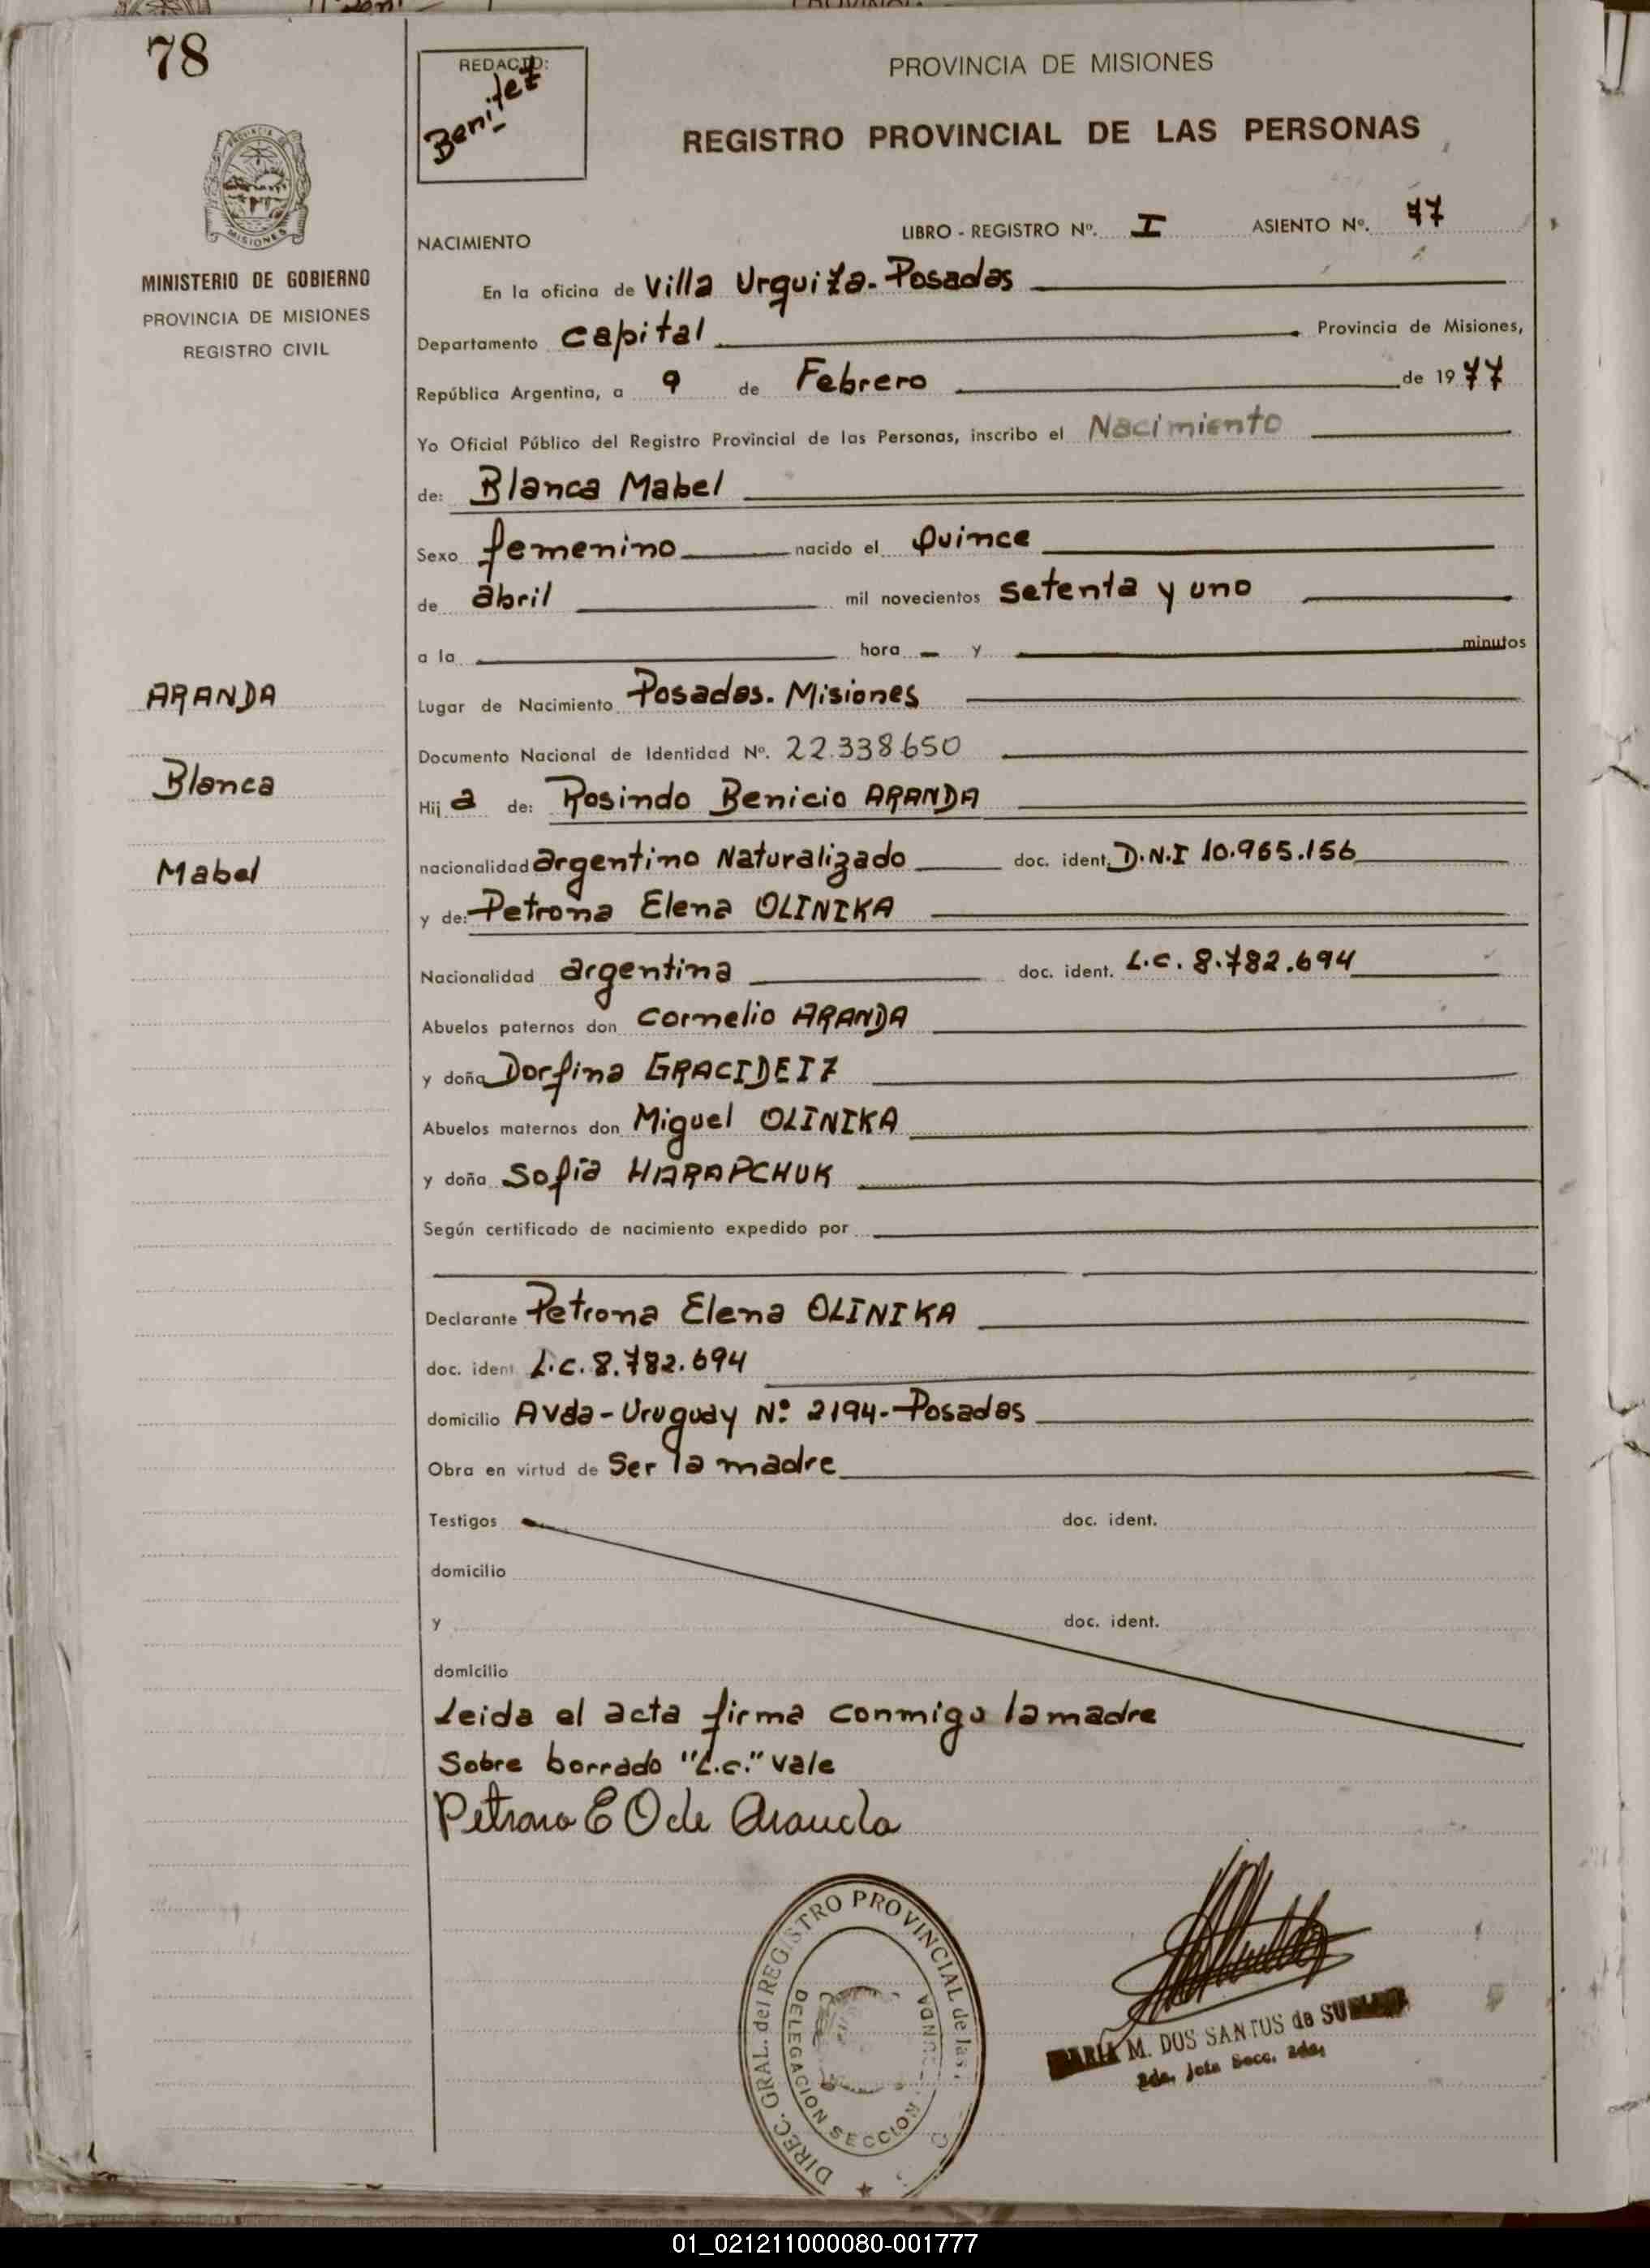 78
REDACTO:
Benitez
PROVINCIA DE MISIONES
REGISTRO PROVINCIAL DE LAS PERSONAS
MISIONES
MINISTERIO DE GOBIERNO
PROVINCIA DE MISIONES
REGISTRO CIVIL
LIBRO - REGISTRO Nº. I ASIENTO Nº. 77
NACIMIENTO
En la oficina de Villa Urquiza. Posadas
Departamento Capital Provincia de Misiones,
República Argentina, a 9 de Febrero de 1977
Yo Oficial Público del Registro Provincial de las Personas, inscribo el Nacimiento
de: Blanca Mabel
Sexo femenino nacido el Quince
de abril mil novecientos setenta y uno
a la hora y minutos
ARANDA
Lugar de Nacimiento Posadas. Misiones
Documento Nacional de Identidad Nº. 22.338.650
Blanca
Hij a de: Rosindo Benicio ARANDA
Mabel
nacionalidad argentino Naturalizado doc. ident. D.N.I 10.965.156
y de: Petrona Elena OLINIKA
Nacionalidad argentina doc. ident. L.C. 8.782.694
Abuelos paternos don Cornelio ARANDA
y doña Dorfina GRACIDEIZ
Abuelos maternos don Miguel OLINIKA
y doña Sofia HARAPCHUK
Según certificado de nacimiento expedido por
Declarante Petrona Elena OLINIKA
doc. ident L.C. 8.782.694
domicilio Avda-Uruguay Nº 2194-Posadas
Obra en virtud de Ser la madre
Testigos doc. ident.
domicilio
y doc. ident.
domicilio
Leida el acta firma conmigo la madre
Sobre borrado "L.c." vale
Petrona E O de Aranda
DIREC. GRAL. del REGISTRO PROVINCIAL de las
DELEGACION SECCION
MARIA M. DOS SANTOS de
2da. Jefa Secc. 2da.
01_021211000080-001777